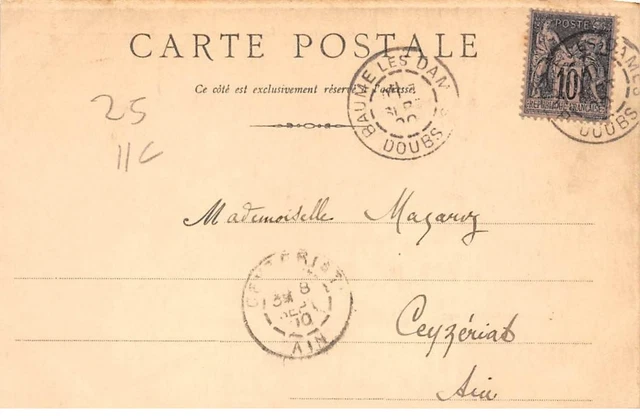 CARTE POSTALE
Ce côté est exclusivement réservé à l'adresse.
25
11C
BAUME LES DAM
DOUBS
POSTE
10
RÉPUBLIQUE FRANÇAISE
LES DAM
DOUBS
Mademoiselle Magaroz
CEYZERIAT
8
SEPT
00
AIN
Ceyzériat
Ain